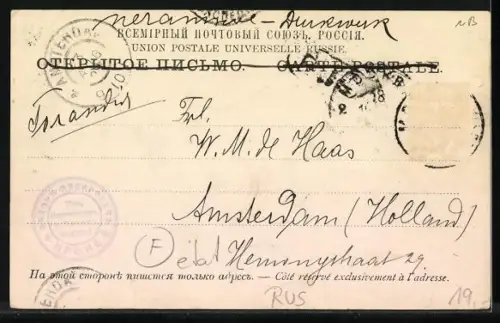 ВСЕМІРНЫЙ ПОЧТОВЫЙ СОЮЗЪ. РОССІЯ.
UNION POSTALE UNIVERSELLE RUSSIE.
ОТКРЫТОЕ ПИСЬМО. — CARTE POSTALE.
Голандія
Frl.
W. M. de Haas
Amsterdam (Holland)
F
Hemonystraat 29
На этой сторонѣ пишется только адресъ. — Côté réservé exclusivement à l'adresse.
RUS
19,-